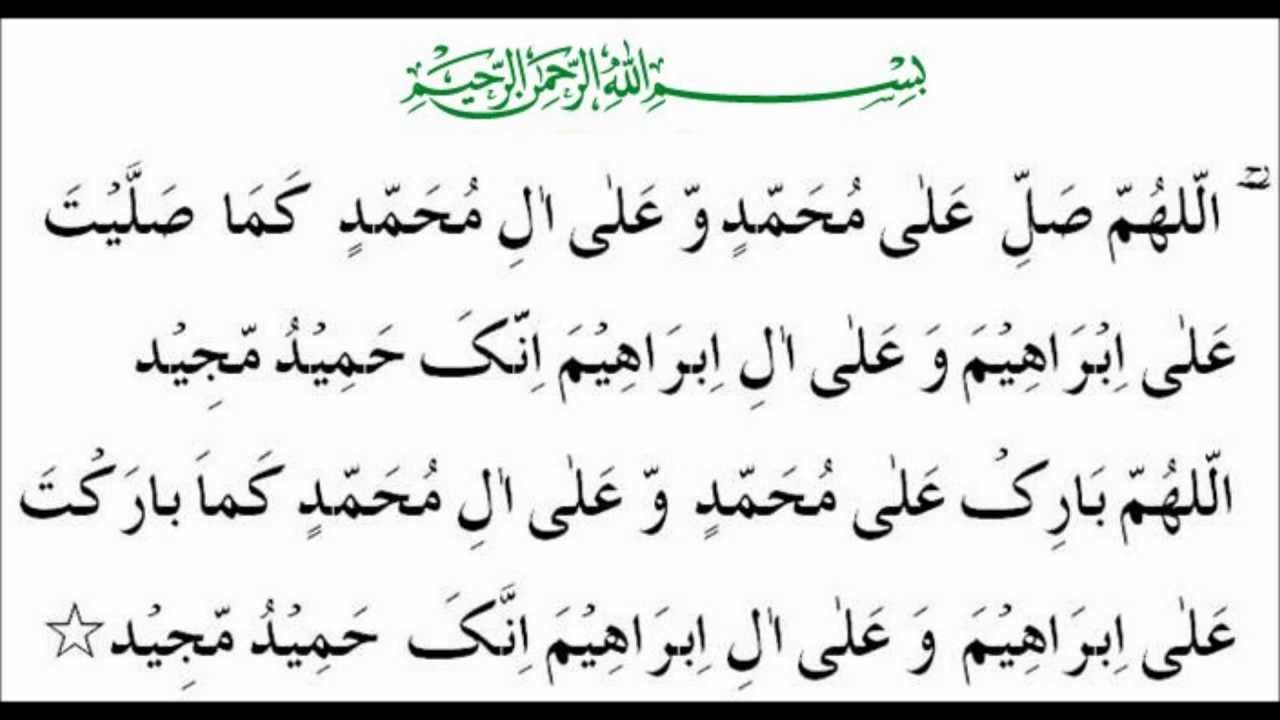 بِسْمِ اللهِ الرَّحْمٰنِ الرَّحِيْمِ
الّلهُمّ صَلِّ عَلٰى مُحَمّدٍ وّ عَلٰى اٰلِ مُحَمّدٍ كَمَا صَلَّيْتَ
عَلٰى اِبْرَاهِيْمَ وَ عَلٰى اٰلِ اِبرَاهِيْمَ اِنّکَ حَمِيْدُ مّجِيْد
الّلهُمّ بَارِکْ عَلٰى مُحَمّدٍ وّ عَلٰى اٰلِ مُحَمّدٍ كَماَ بارَكْتَ
عَلٰى اِبرَاهِيْمَ وَ عَلٰى اٰلِ اِبرَاهِيْمَ اِنَّکَ حَمِيْدُ مّجِيْد☆